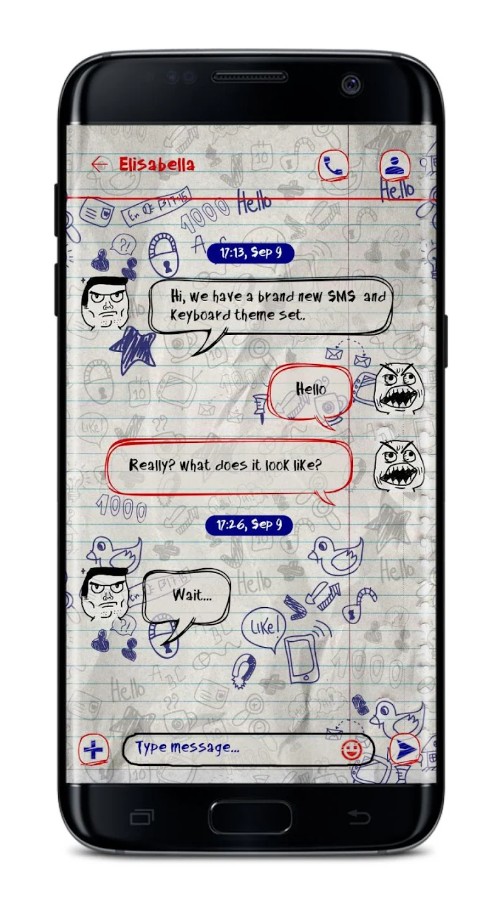 Elisabella
Hello
Hello
1000
Hello
17:13, Sep 9
?!
Hi, we have a brand new SMS and
Keyboard theme set.
Hello
Really? What does it look like?
1000
17:26, Sep 9
Hello
Wait...
Like!
1000
Hello
Type message...